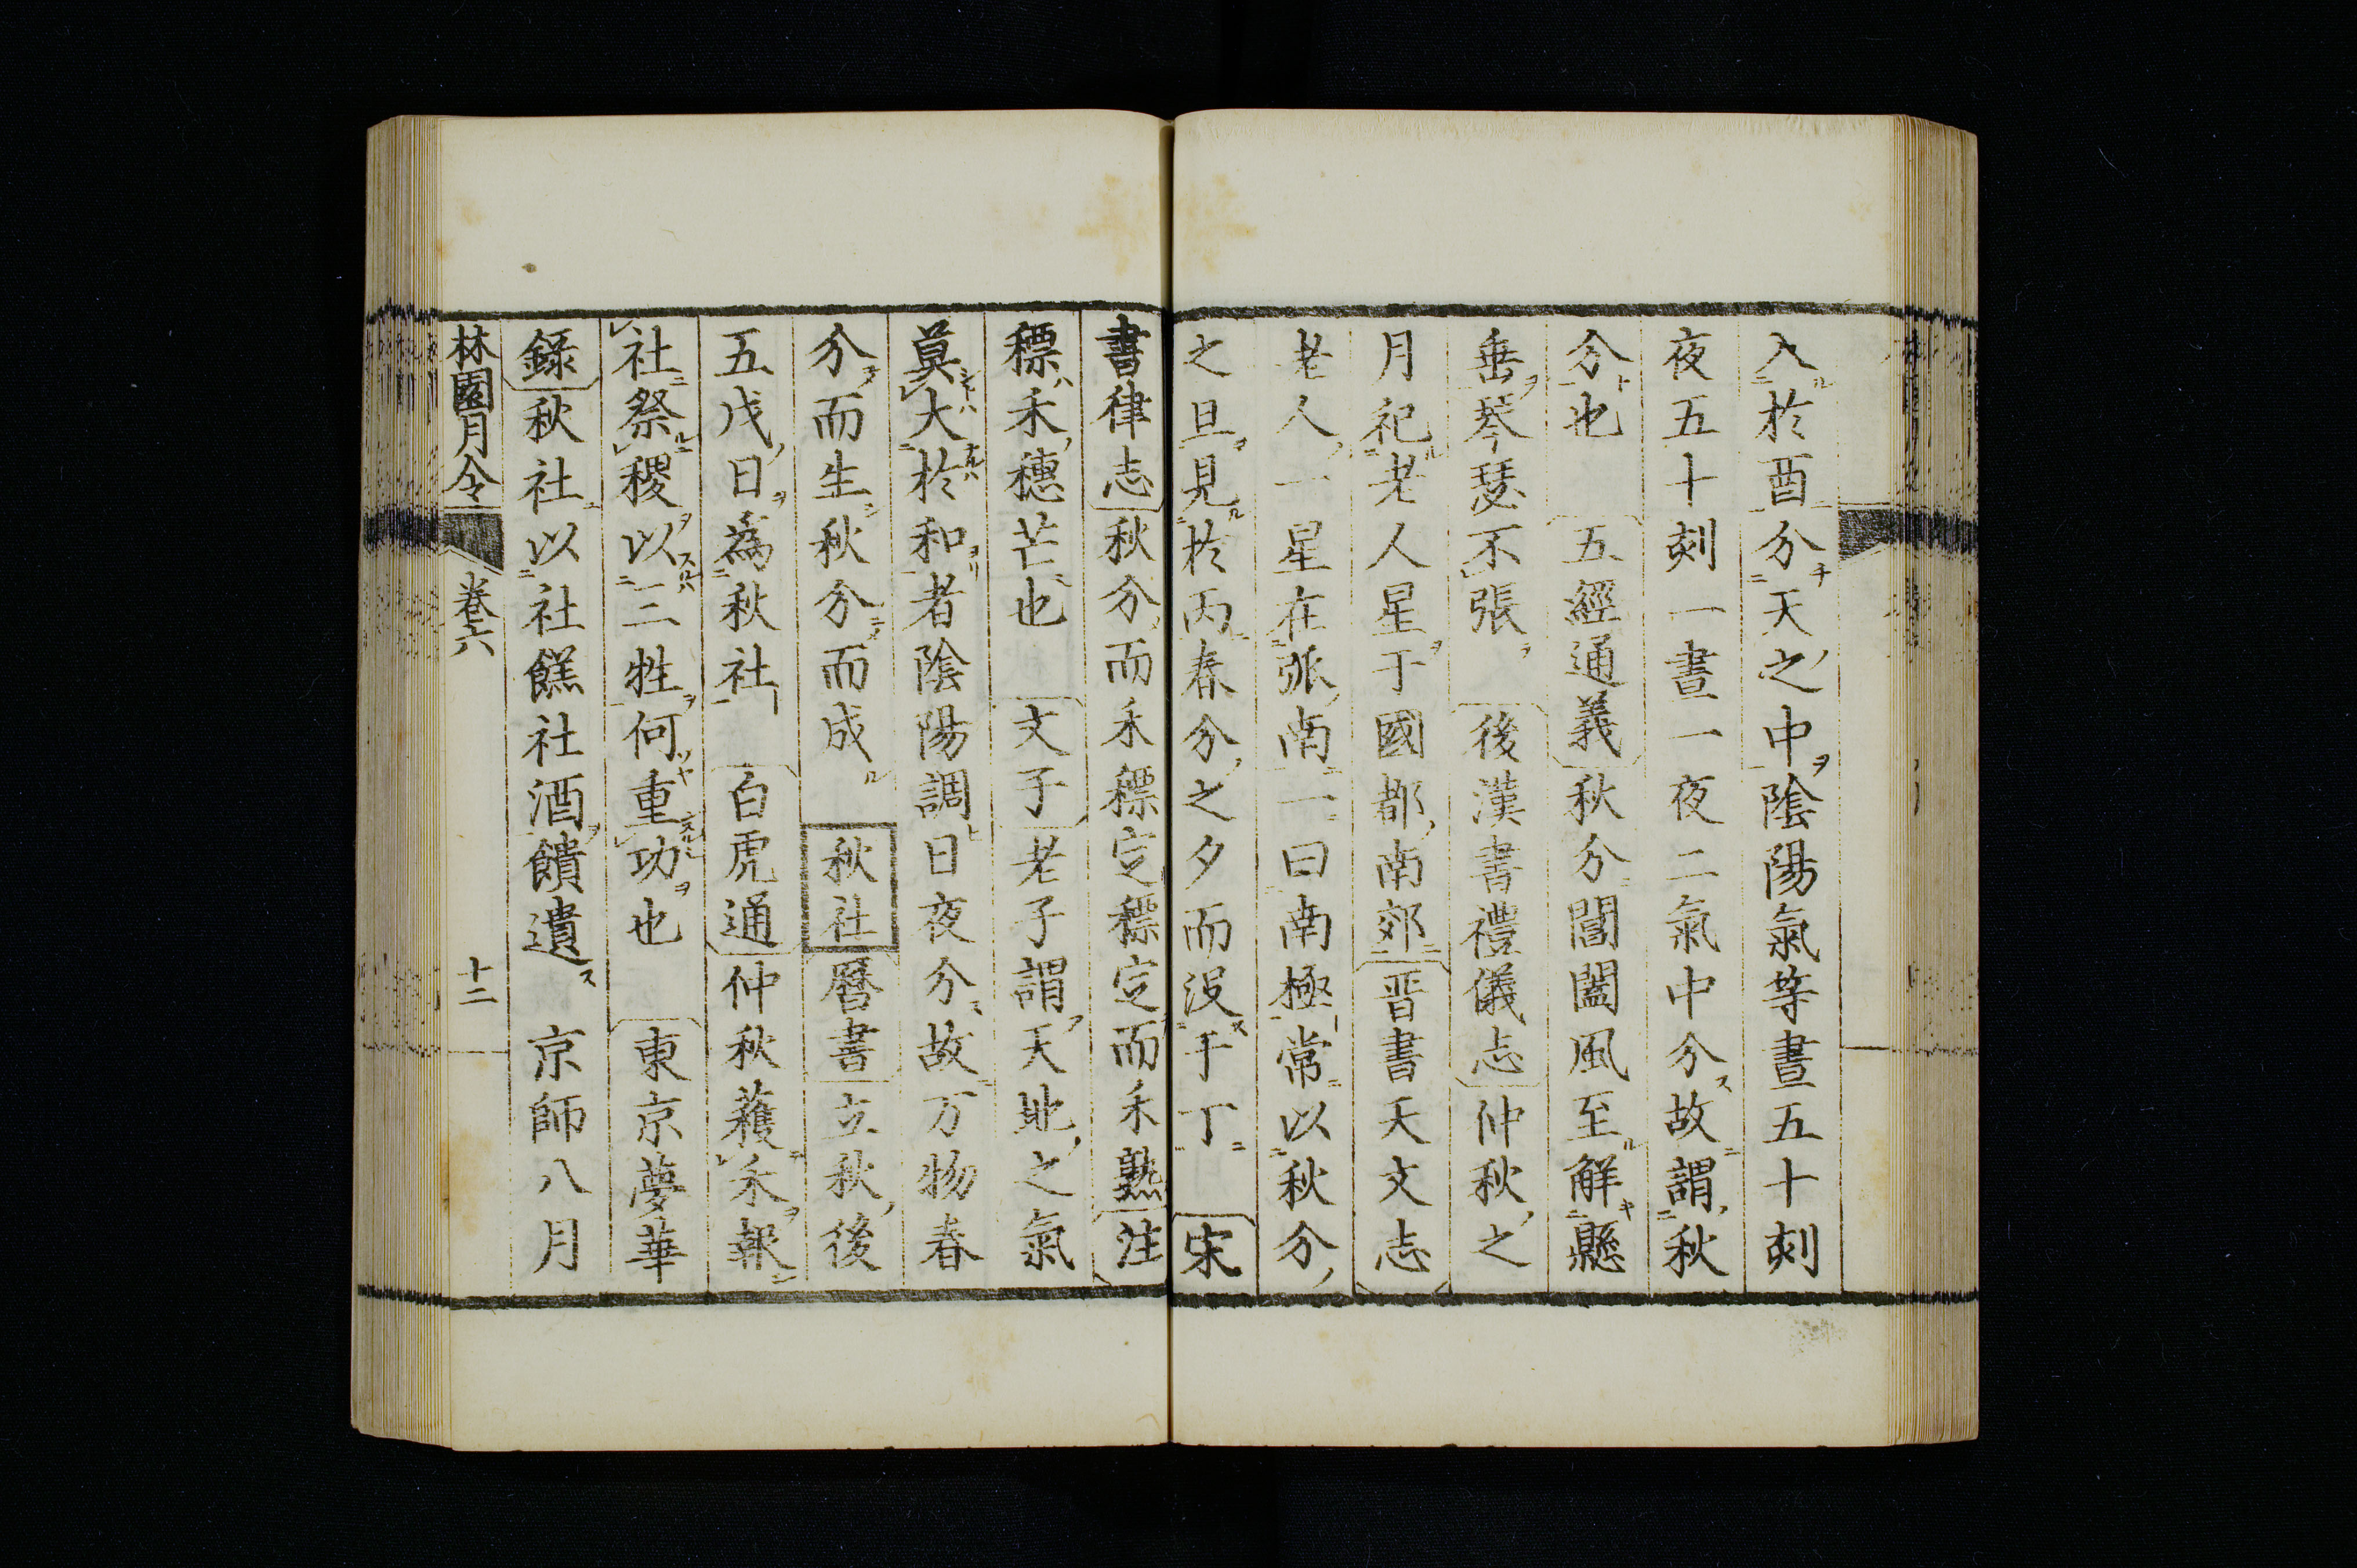 入於酉分天之中陰陽氣等晝五十刻
夜五十刻一晝一夜二氣中分故謂秋
分也　五經通義秋分閶闔風至解懸
垂琴瑟不張　後漢書禮儀志仲秋之
月祀老人星于國都南郊晋書天文志
老人一星在弧南一曰南極常以秋分
之旦見於丙春分之夕而沒于丁　宋
書律志秋分而禾穮定穮定而禾熟注
穮禾穗芒也　文子老子謂天地之氣
莫大於和者陰陽調日夜分故万物春
分而生秋分而成　秋社曆書立秋後
五戊日為秋社　白虎通仲秋蘓禾報
社祭稷以三牲何重功也　東京夢華
錄秋社以社餻社酒饋遺　京師八月
林園月令　卷六　十二